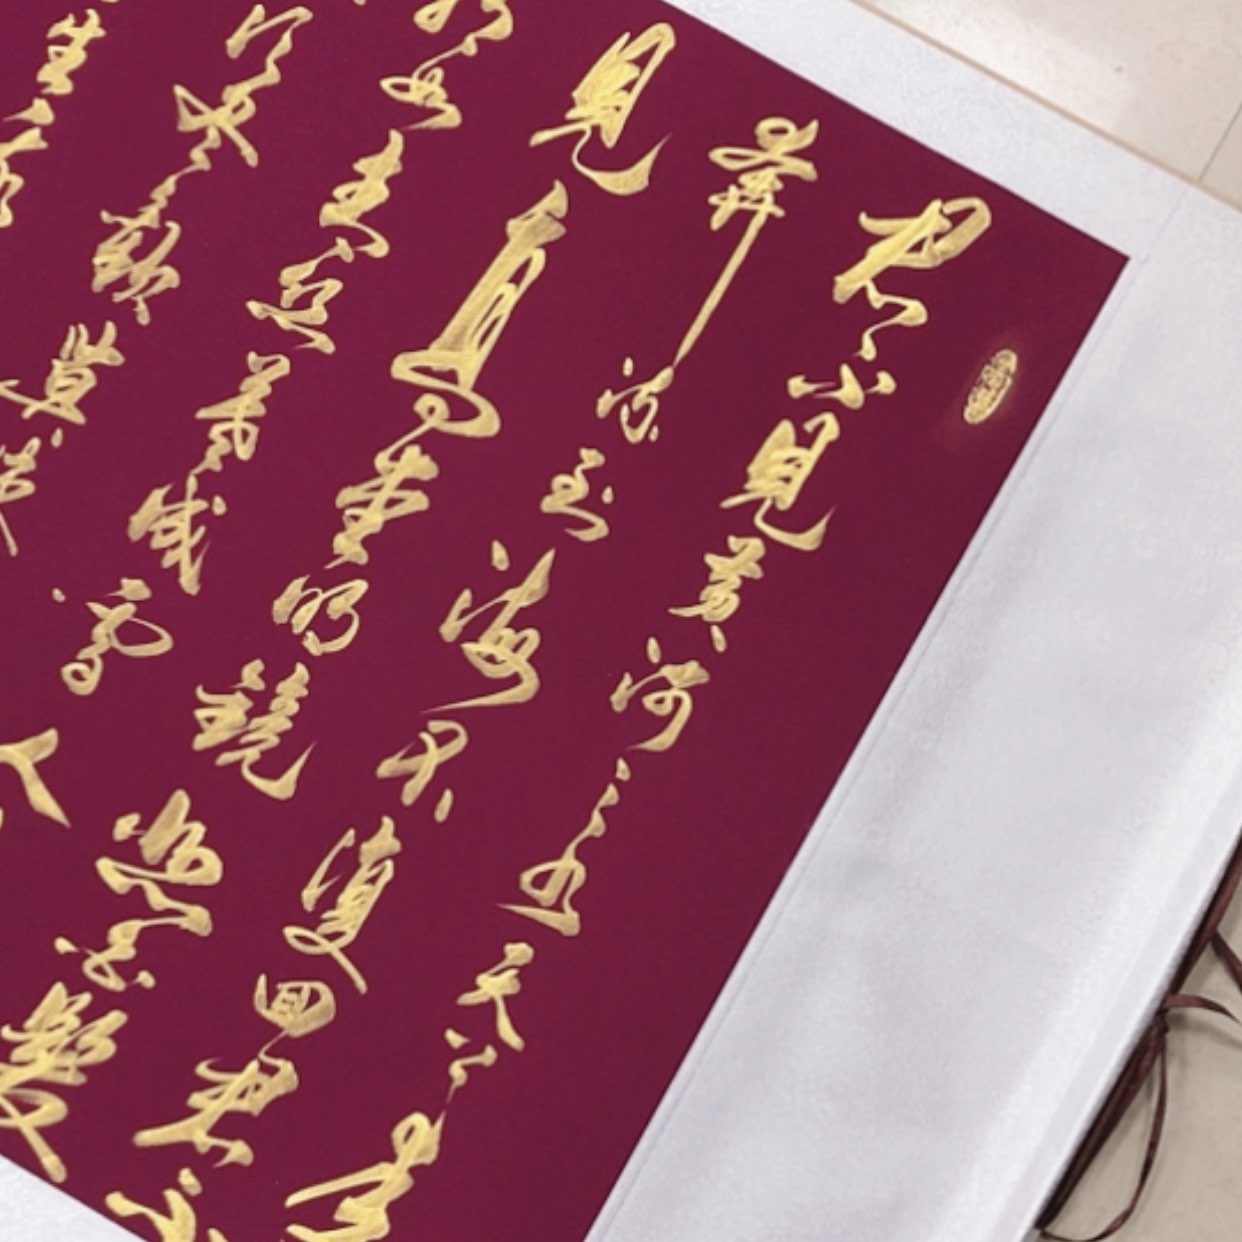 君不見黄河之水天上来
奔流到海不復回君不
見高堂明鏡悲白髮
如青絲暮成雪人
歡莫
生